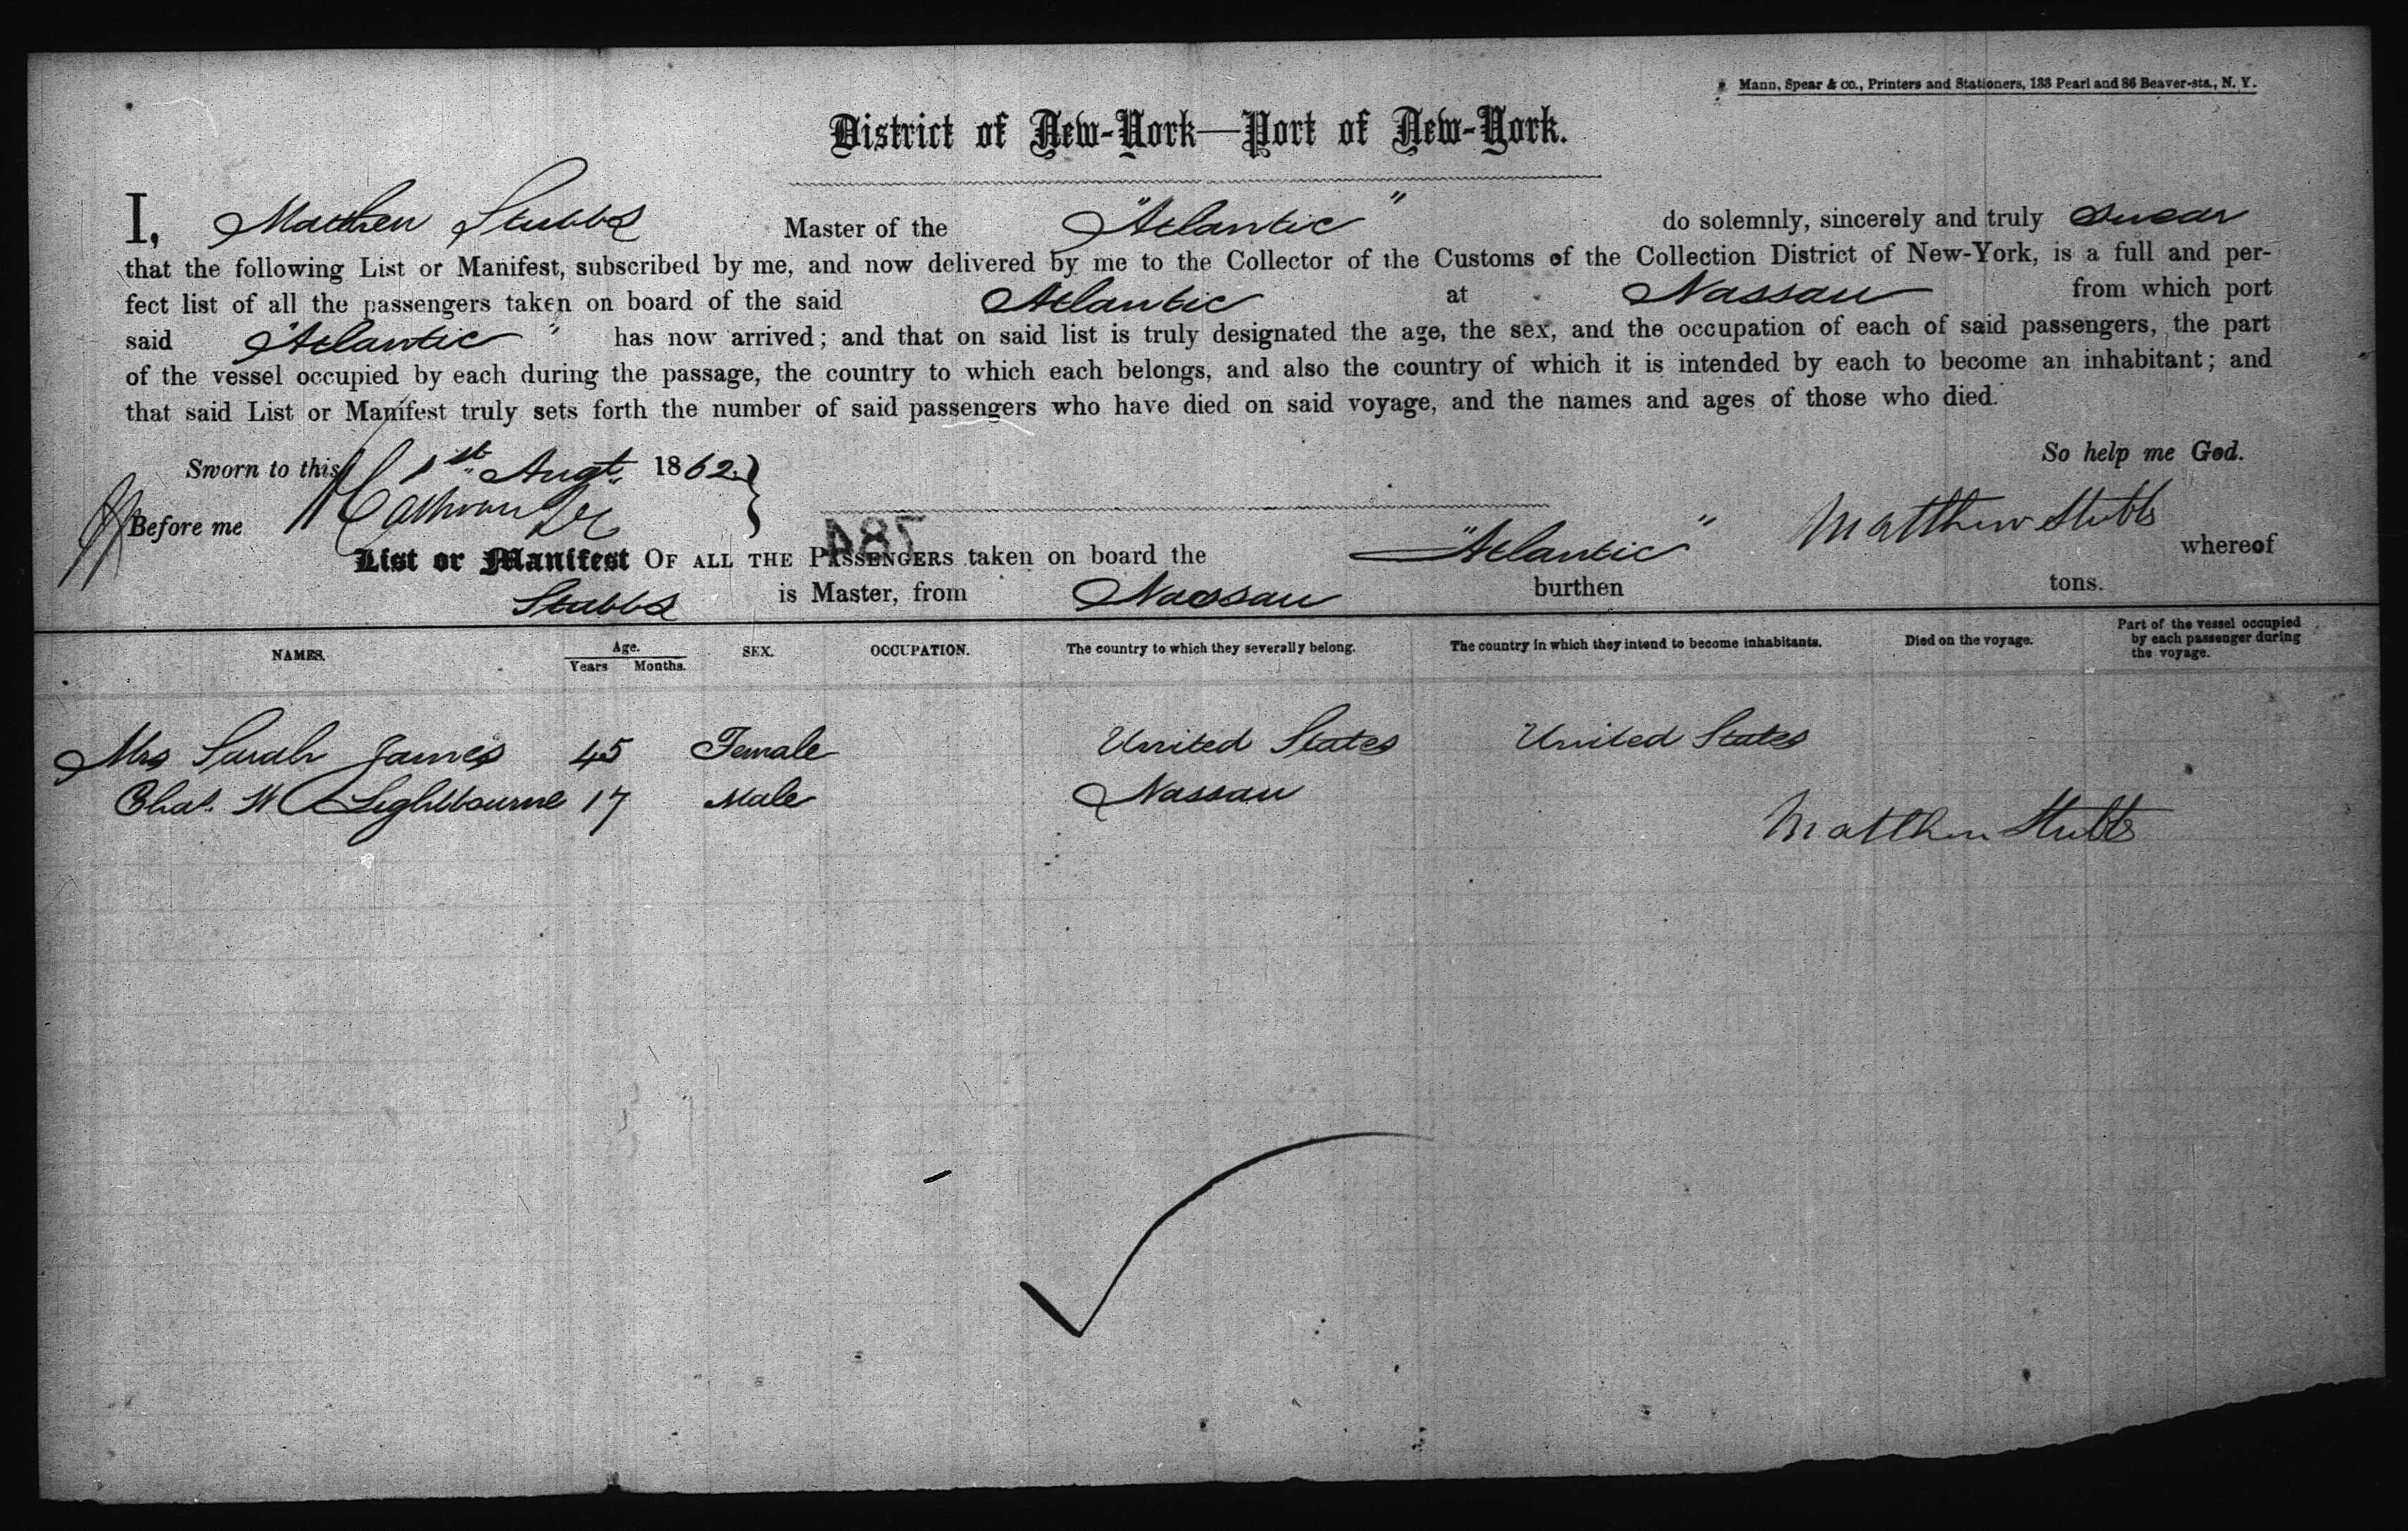 Mann, Spear & co., Printers and Stationers, 133 Pearl and 86 Beaver-sts., N. Y.
District of New-York—Port of New-York.
I, Matthew Stubbs Master of the "Atlantic" do solemnly, sincerely and truly swear
that the following List or Manifest, subscribed by me, and now delivered by me to the Collector of the Customs of the Collection District of New-York, is a full and per-
fect list of all the passengers taken on board of the said Atlantic at Nassau from which port
said "Atlantic" has now arrived; and that on said list is truly designated the age, the sex, and the occupation of each of said passengers, the part
of the vessel occupied by each during the passage, the country to which each belongs, and also the country of which it is intended by each to become an inhabitant; and
that said List or Manifest truly sets forth the number of said passengers who have died on said voyage, and the names and ages of those who died.
So help me God.
Sworn to this 1st Augt. 1862.
Before me Calhoun
Matthew Stubbs
784
List or Manifest OF ALL THE PASSENGERS taken on board the "Atlantic" whereof
Stubbs is Master, from Nassau burthen tons.
NAMES. Age. Years Months. SEX. OCCUPATION. The country to which they severally belong. The country in which they intend to become inhabitants. Died on the voyage. Part of the vessel occupied by each passenger during the voyage.
Mrs Sarah James 45 Female United States United States
Chas. W Lightbourne 17 Male Nassau
Matthew Stubbs